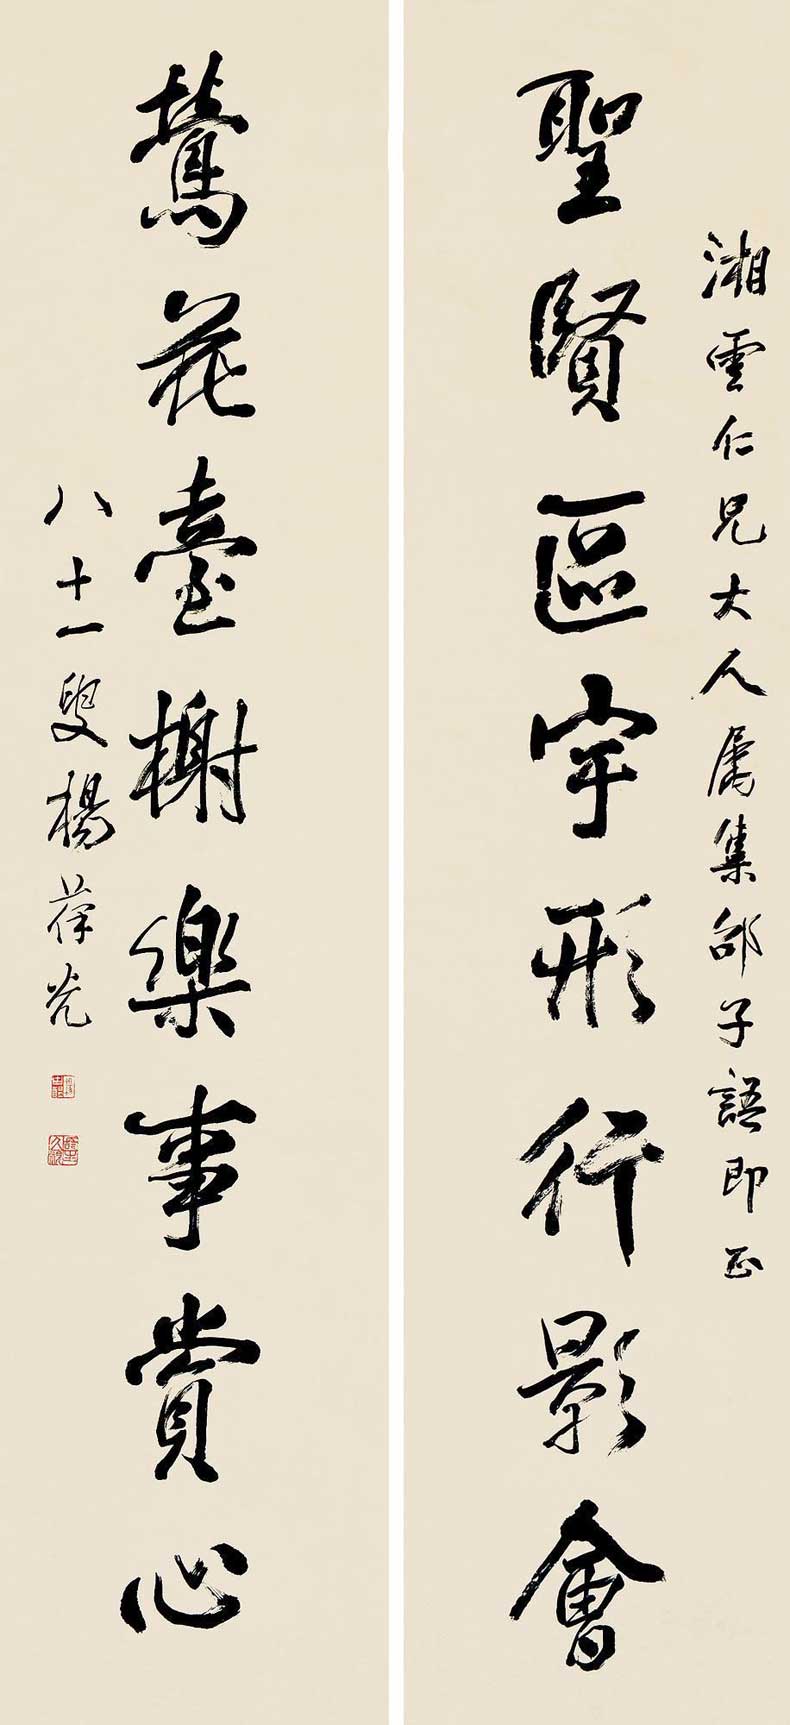 湘雲仁兄大人属集邵子語即正
聖賢區宇形行影會
鶯花臺榭樂事賞心
八十一叟楊葆光